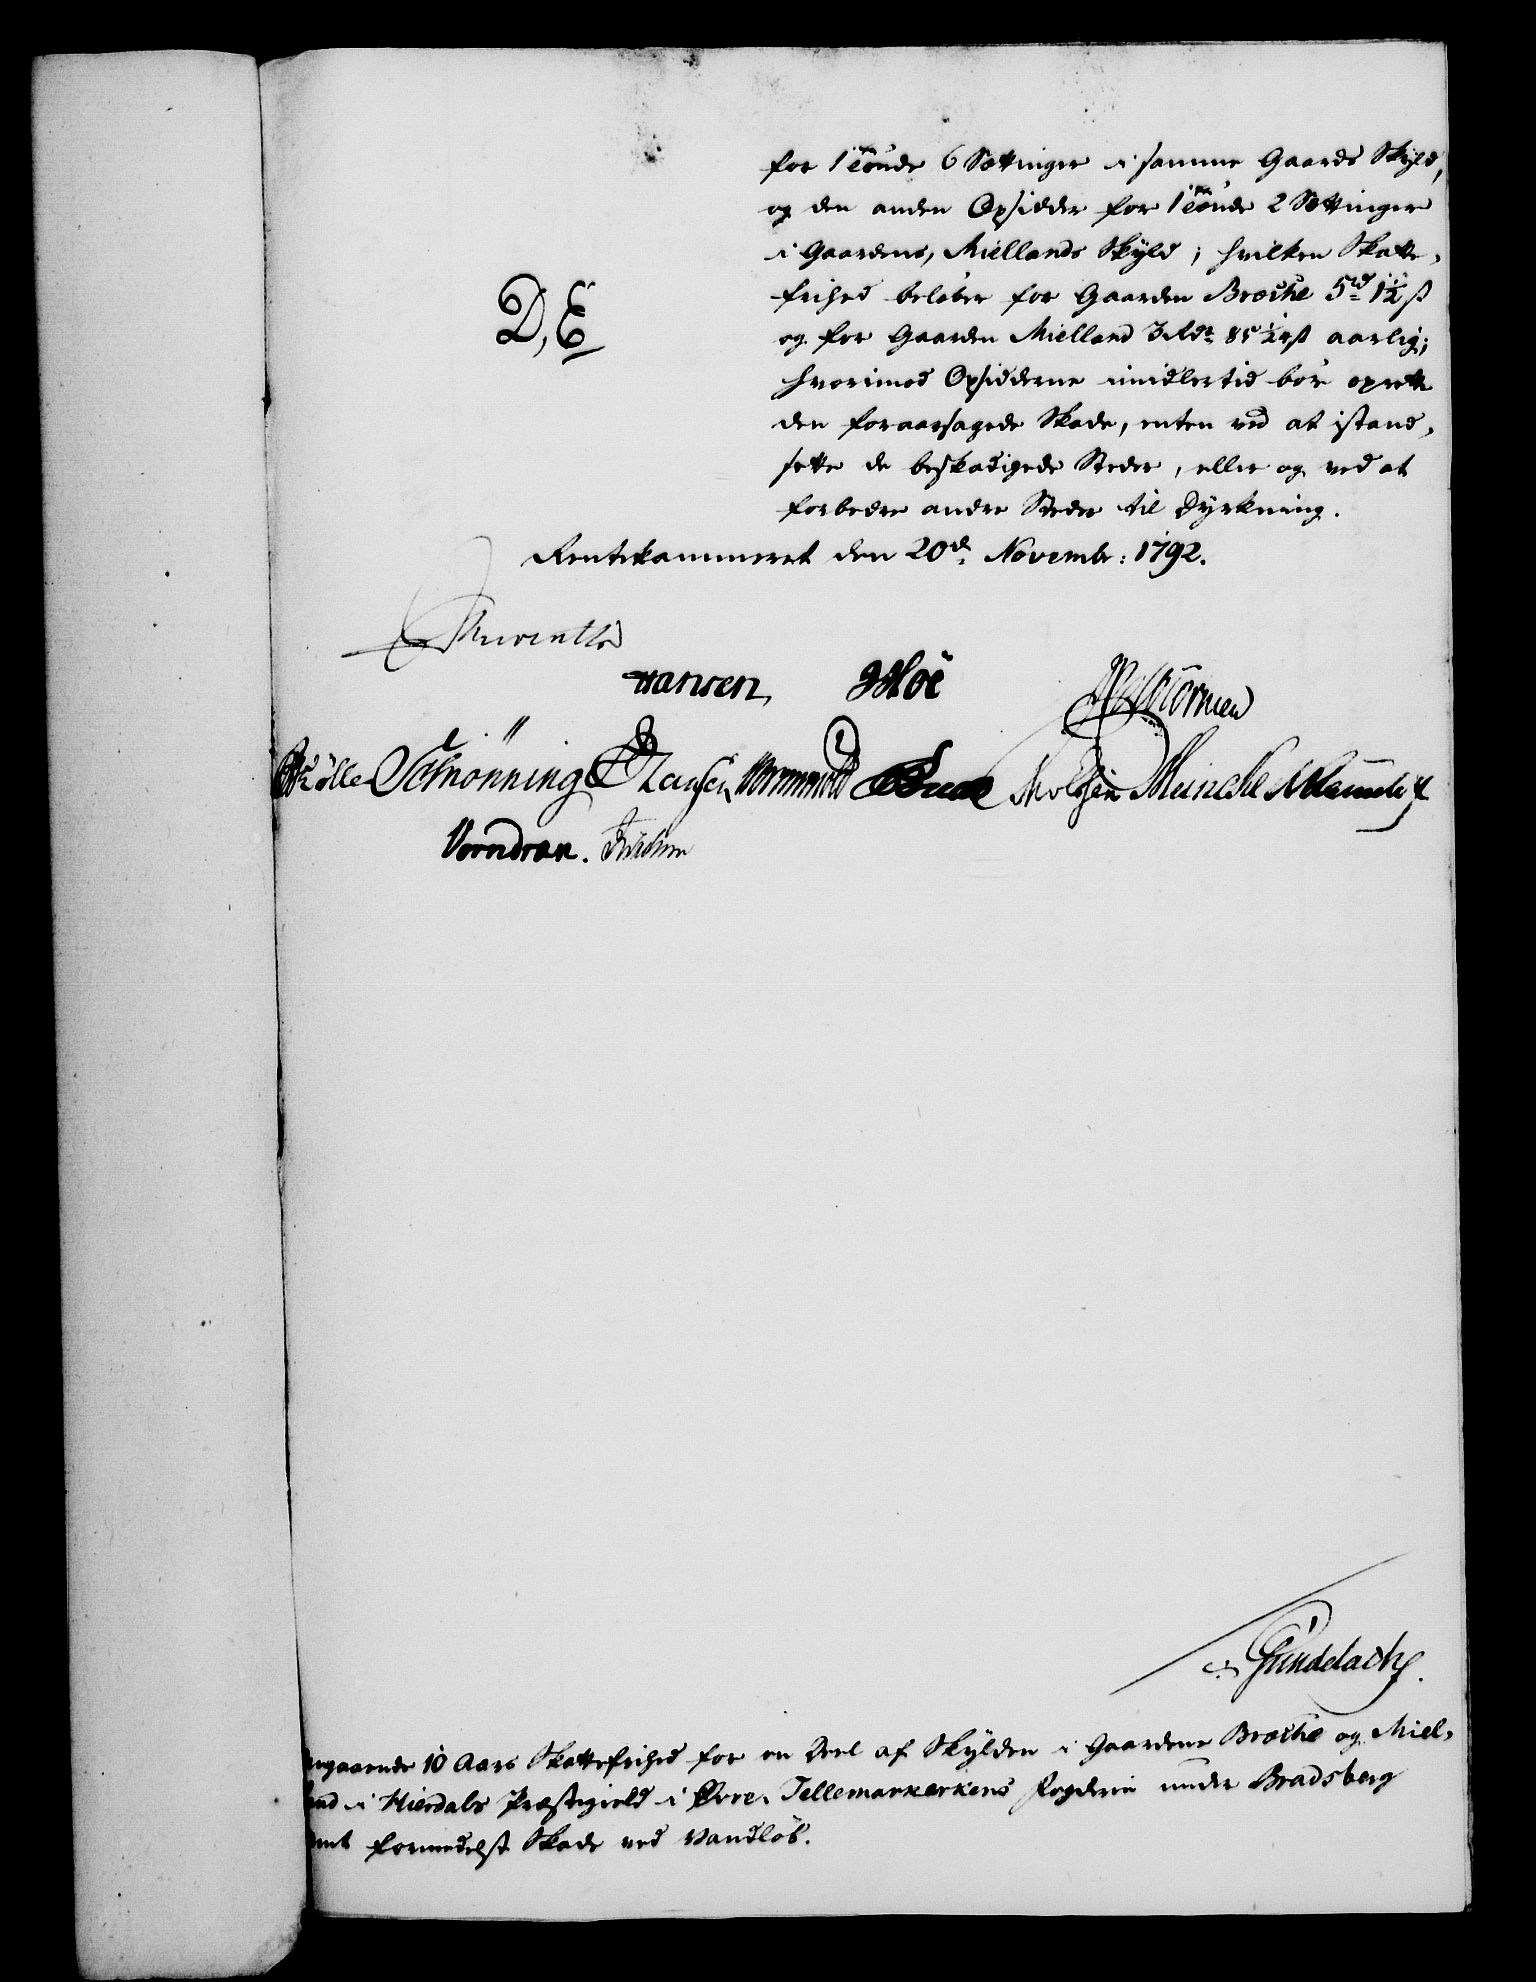 for 1 Tönde 6 Sættinger i samme Gaards Skyld,
og den anden Opsidder for 1 Tönde 2 Sættinger
i Gaardens, Miellands Skyld; hvilken Skatte-
frihed beløber for Gaarden Bræche 5 rd 1½ ß
og for Gaarden Mielland 3 Rdr 85½ ß aarlig;
hvorimod Opsidderne imidlertid bör oprette
den foraarsagede Skade, enten ved at istand-
sette de beskadigede Steder, eller og ved at
forbedre andre Steder til Dyrkning.
D, E
Rentekammeret den 20de Novembr: 1792.
Reventlo
Hansen Hoë Wormen
Schönning Hansen Meinche
Vorndran.
Gundelach
10 Aars Skattefrihed for en Deel af Skylden i Gaardene Bræche og Miel-
land i Hierdals Præstegield i Øvre Tellemarkerkens Fogderie under Bradsberg
Amt formedelst Skade ved Vandløb.